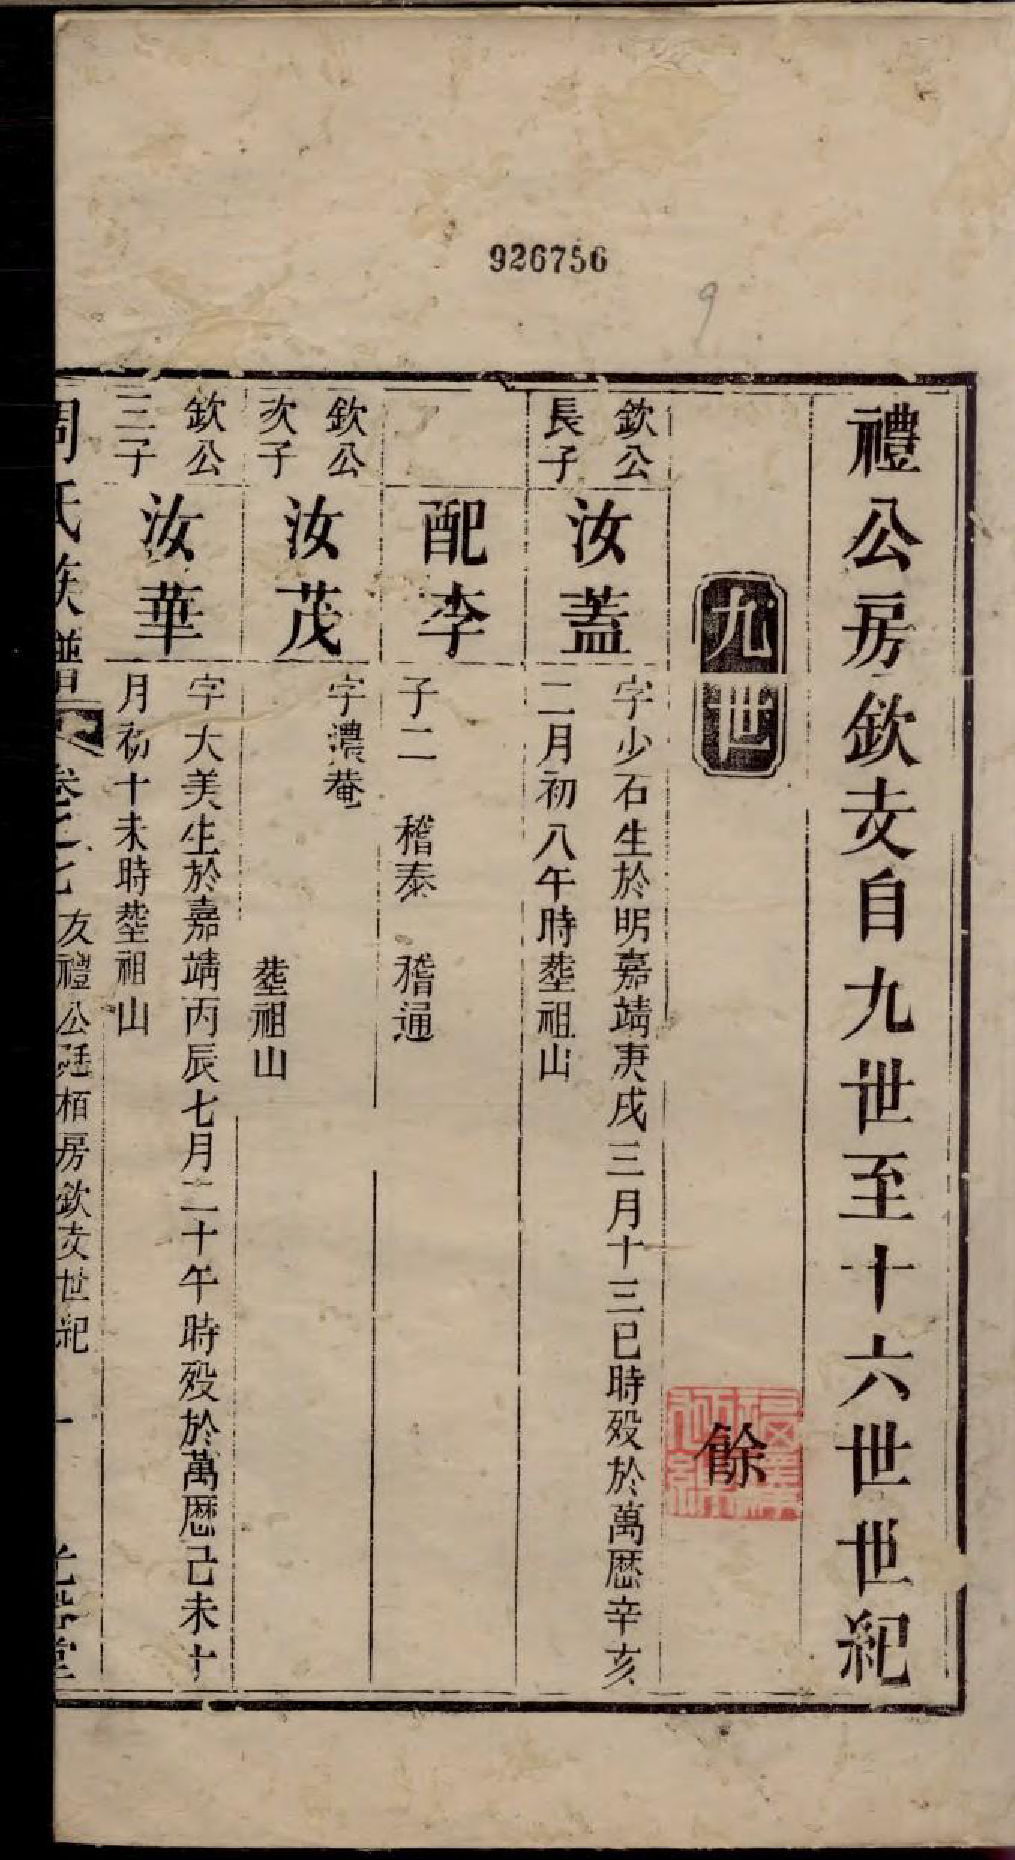 926756
9
禮公房欽支自九世至十六世世紀
九世
餘
欽公
長子
汝蓋
字少石生於明嘉靖庚戌三月十三巳時殁於萬曆辛亥
二月初八午時塟祖山
配李
子二 稽泰 稽通
欽公
次子
汝茂
字濃菴
塟祖山
欽公
三子
汝華
字大美生於嘉靖丙辰七月二十午時殁於萬曆己未十
月初十未時塟祖山
周氏族譜 卷之七 友禮公廷栢房欽支世紀 一 堂